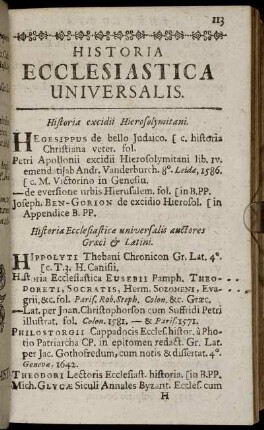 113
HISTORIA
ECCLESIASTICA
UNIVERSALIS.
Historia excidii Hierosolymitani.
HEGESIPPUS de bello Judaico. [ c. historia
Christiana veter. fol.
Petri Apollonii excidii Hierosolymitani lib. IV.
emendati ab Andr. Vanderburch. 8º. Leidæ, 1586.
[ c. M. Victorino in Genesin.
—de eversione urbis Hierusalem. fol. [ in B.PP.
Joseph. BEN-GORION de excidio Hierosol. [ in
Appendice B. PP.
Historiæ Ecclesiasticæ universalis auctores
Græci & Latini.
HIPPOLYTI Thebani Chronicon Gr. Lat. 4º.
[c. T. 3. H. Canisii.
Historia Ecclesiastica EUSEBII Pamph. THEO-
DORETI, SOCRATIS, Herm. SOZOMENI, Eva-
grii, &c. fol. Paris. Rob. Steph. Colon. &c. Græc.
—Lat. per Joan. Christophorson cum Suffridi Petri
illustrat. fol. Colon. 1581. — & Paris. 1571.
PHILOSTORGII Cappadocis Eccles. histor. à Pho-
tio Patriarcha CP. in epitomen redact. Gr. Lat.
per Jac. Gothofredum, cum notis & dissertat. 4º.
Genevæ, 1642.
THEODORI Lectoris Ecclesiast. historia. [in B.PP.
Mich. GLYCÆ Siculi Annales Byzant. Eccles. cum
H